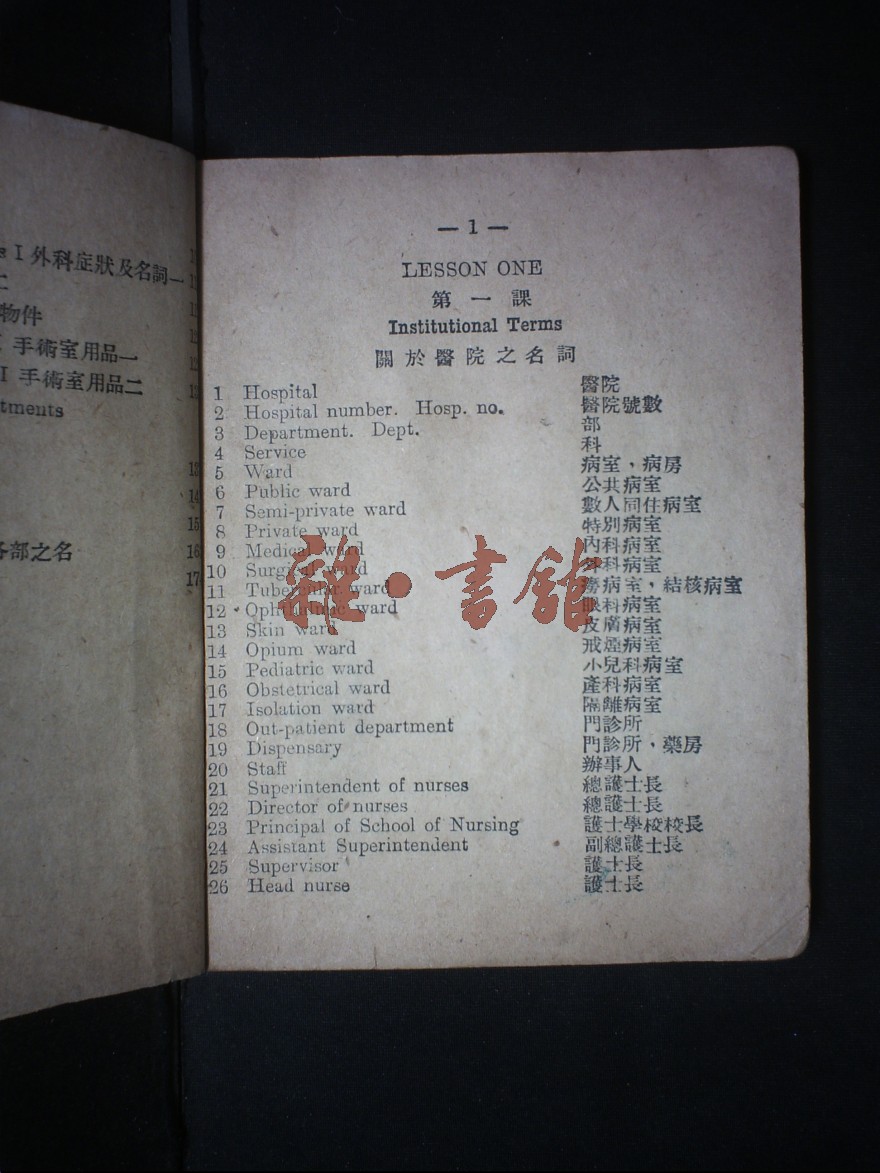 s I 外科症狀及名詞一
二
物件
I 手術室用品一
I 手術室用品二
tments
各部之名
13
14
15
16
17
— 1 —
LESSON ONE
第一課
Institutional Terms
關於醫院之名詞
1 Hospital 醫院
2 Hospital number. Hosp. no. 醫院號數
3 Department. Dept. 部
4 Service 科
5 Ward 病室，病房
6 Public ward 公共病室
7 Semi-private ward 數人同住病室
8 Private ward 特別病室
9 Medical ward 內科病室
10 Surgical ward 外科病室
11 Tubercular ward 癆病室，結核病室
12 Ophthalmic ward 眼科病室
13 Skin ward 皮膚病室
14 Opium ward 戒煙病室
15 Pediatric ward 小兒科病室
16 Obstetrical ward 產科病室
17 Isolation ward 隔離病室
18 Out-patient department 門診所
19 Dispensary 門診所，藥房
20 Staff 辦事人
21 Superintendent of nurses 總護士長
22 Director of nurses 總護士長
23 Principal of School of Nursing 護士學校校長
24 Assistant Superintendent 副總護士長
25 Supervisor 護士長
26 Head nurse 護士長
雜·書館